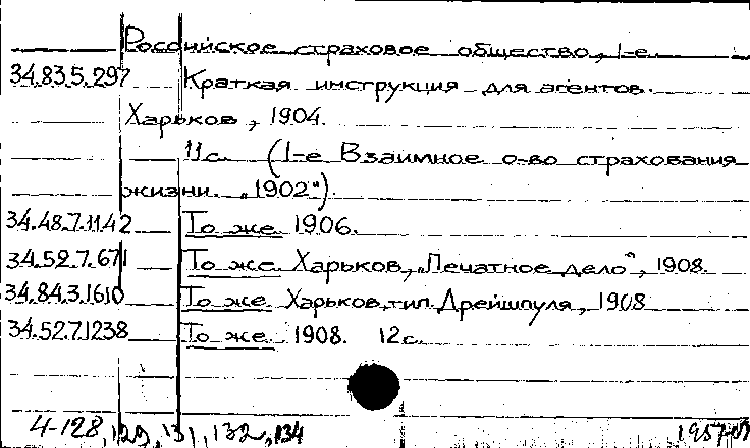 Российское страховое общество, 1-е.
34.83.5.297 Краткая инструкция для агентов.
Харьков, 1904.
11с. (1-е Взаимное о-во страхования
жизни „1902").
34.48.7.1142 То же 1906.
34.52.7.671 То же Харьков, „Печатное дело", 1908.
34.84.3.1610 То же Харьков, тип. Дрейшпуля, 1908
34.52.7.1238 То же 1908. 12с.
4-128, 129, 131, 132, 134